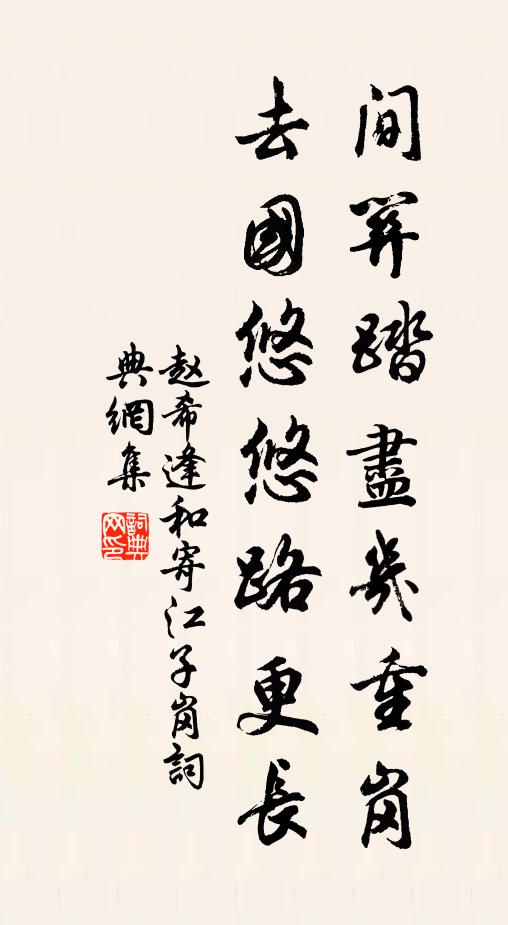 間筭踏盡幾重崗
去國悠悠路更長
赵希逢和寄江子崗詞
典網集
詞典
网印